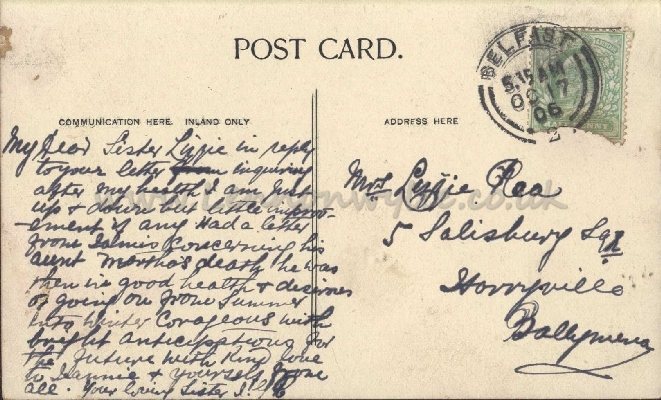 POST CARD.
COMMUNICATION HERE. INLAND ONLY
ADDRESS HERE
BELFAST
5.15 AM
OC 17
06
2
My Dear Sister Lizzie in reply
to your letter inquiring
after my health I am Just
up & down but little improv-
ement if any Had a letter
from concerning his
aunt Martha's death he was
then in good health & desires
of going on from Summer
into Winter Corageous with
bright anticipations for
the future with kind love
to & yourself from
all. Your loving Sister
Mrs Lizzie Rea
5 Salisburg Sqr
Harryville
Ballymena